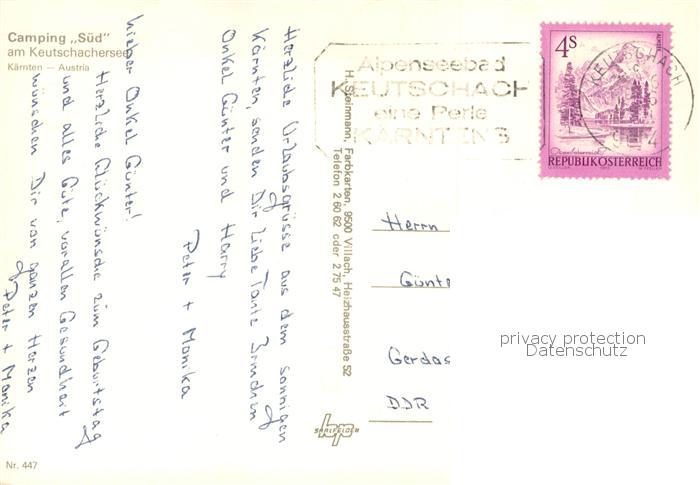 Camping „Süd"
am Keutschachersee
Kärnten — Austria
Lieber Onkel Günter!
Herzliche Glückwünsche zum Geburtstag
und alles Gute, vor allen Gesundheit
wünschen Dir von ganzen Herzen
Peter + Monika
Herzliche Urlaubsgrüsse aus dem sonnigen
Kärnten, senden Dir liebe Tante
Onkel Günter und Harry
Peter + Monika
Nr. 447
H. Steinmann, Farbkarten, 9500 Villach, Heizhausstraße 52
Telefon 2 60 62 oder 2 75 47
SAALFELDEN
Alpenseebad
KEUTSCHACH
eine Perle
KÄRNTENS
4S
REPUBLIK ÖSTERREICH
KEUTSCHACH
Herrn
Günte
Gerdas
DDR
privacy protection
Datenschutz